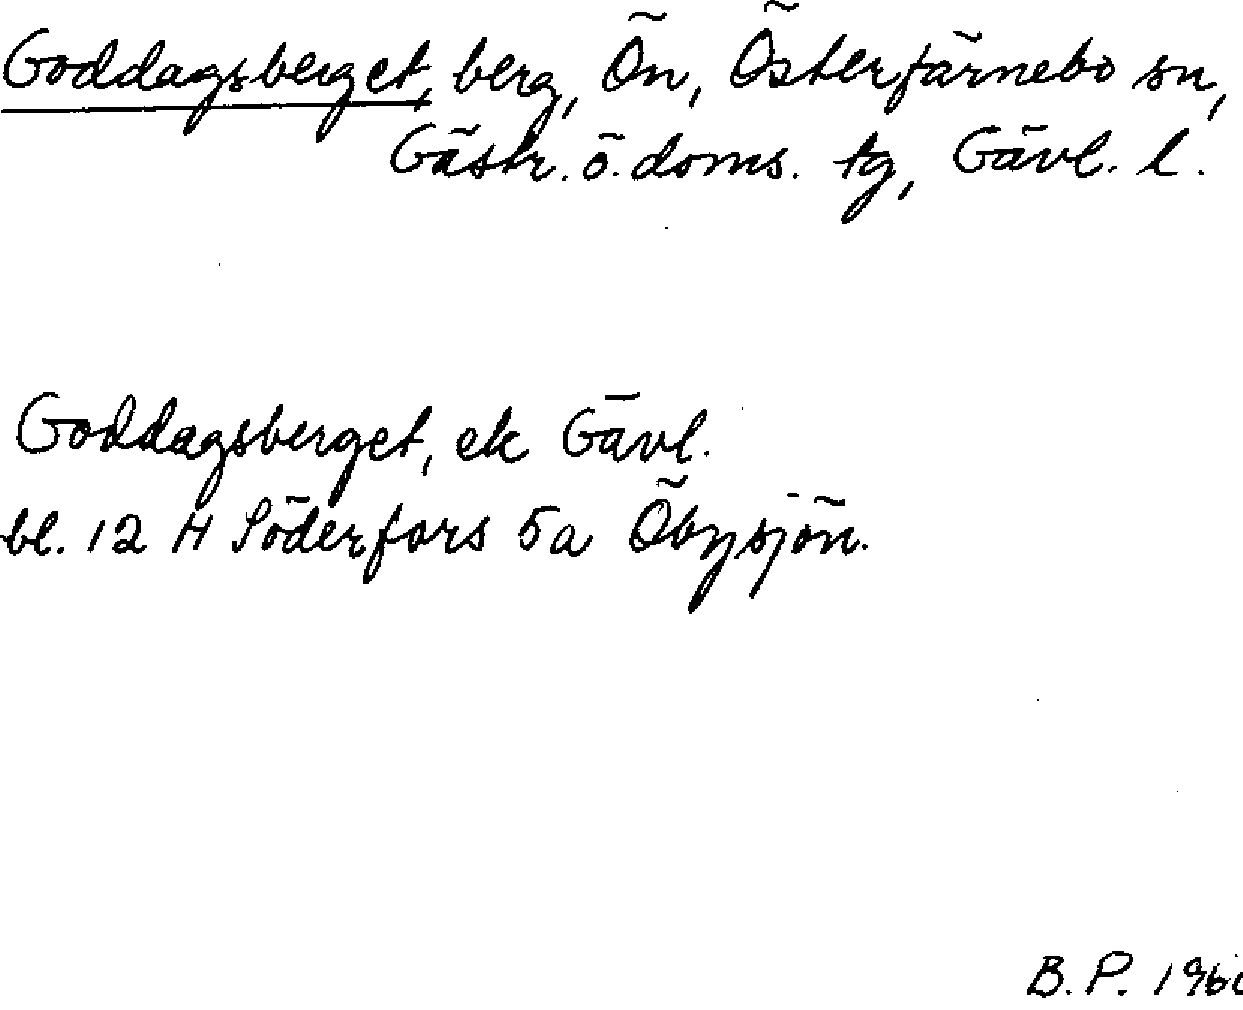 Goddagsberget, berg, Ön, Österfärnebo sn,
Gästr. ö. doms. tg, Gävl. l.
Goddagsberget, ek Gävl.
bl. 12 H Söderfors 5a Öbysjön.
B. P.